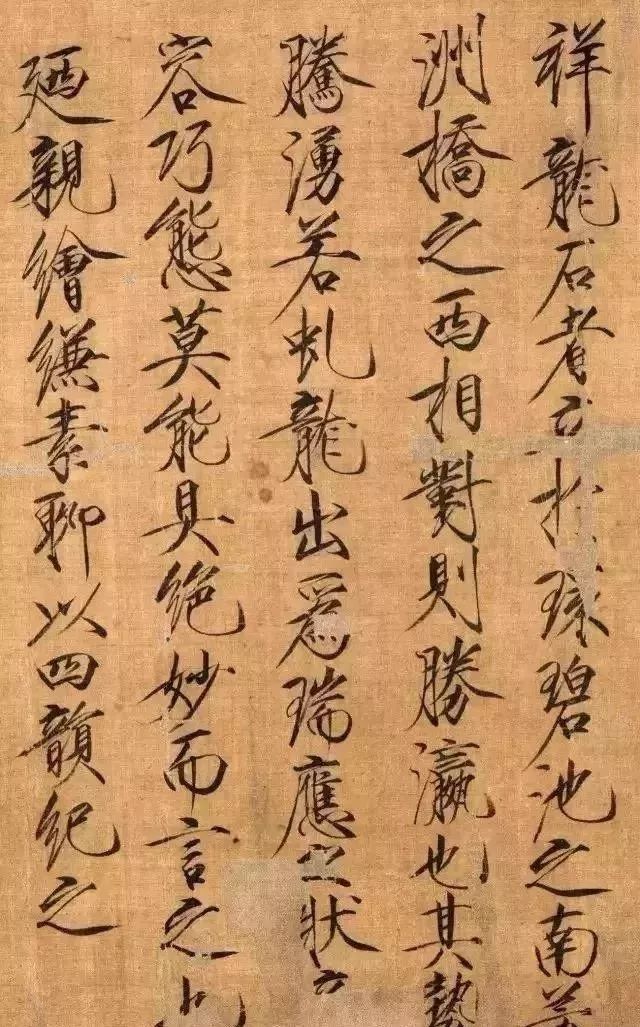 祥龍石者立於環碧池之南
洲橋之西相對則勝瀛也其勢
騰湧若虬龍出爲瑞應之狀
容巧態莫能具絶妙而言之
廼親繪縑素聊以四韻紀之